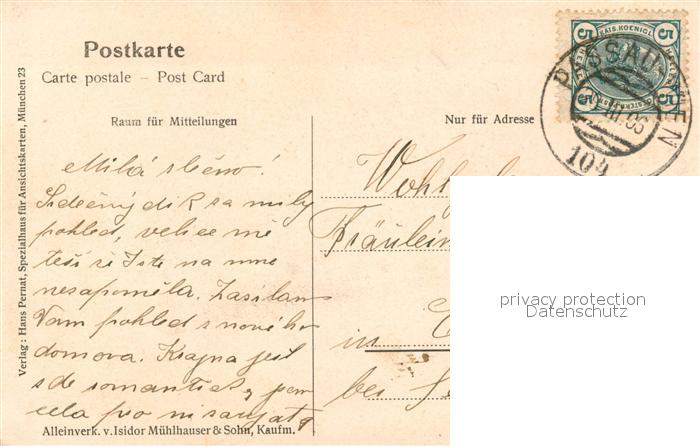 Postkarte
Carte postale – Post Card
Raum für Mitteilungen
Nur für Adresse
Verlag: Hans Pernat, Spezialhaus für Ansichtskarten, München 23
5 KAIS. KOENIGL. 5
5 5
PASSAU
WIEN
III.06
104
Milá slečno!
Srdečný dík za milý
pohled, velice mě
těší že Jste na mne
nezapoměla. Zasílám
Vám pohled z nového
domova. Krajna jest
zde romantická,
cela pro
Fräulein
in
bei
Alleinverk. v. Isidor Mühlhauser & Sohn, Kaufm.
privacy protection
Datenschutz